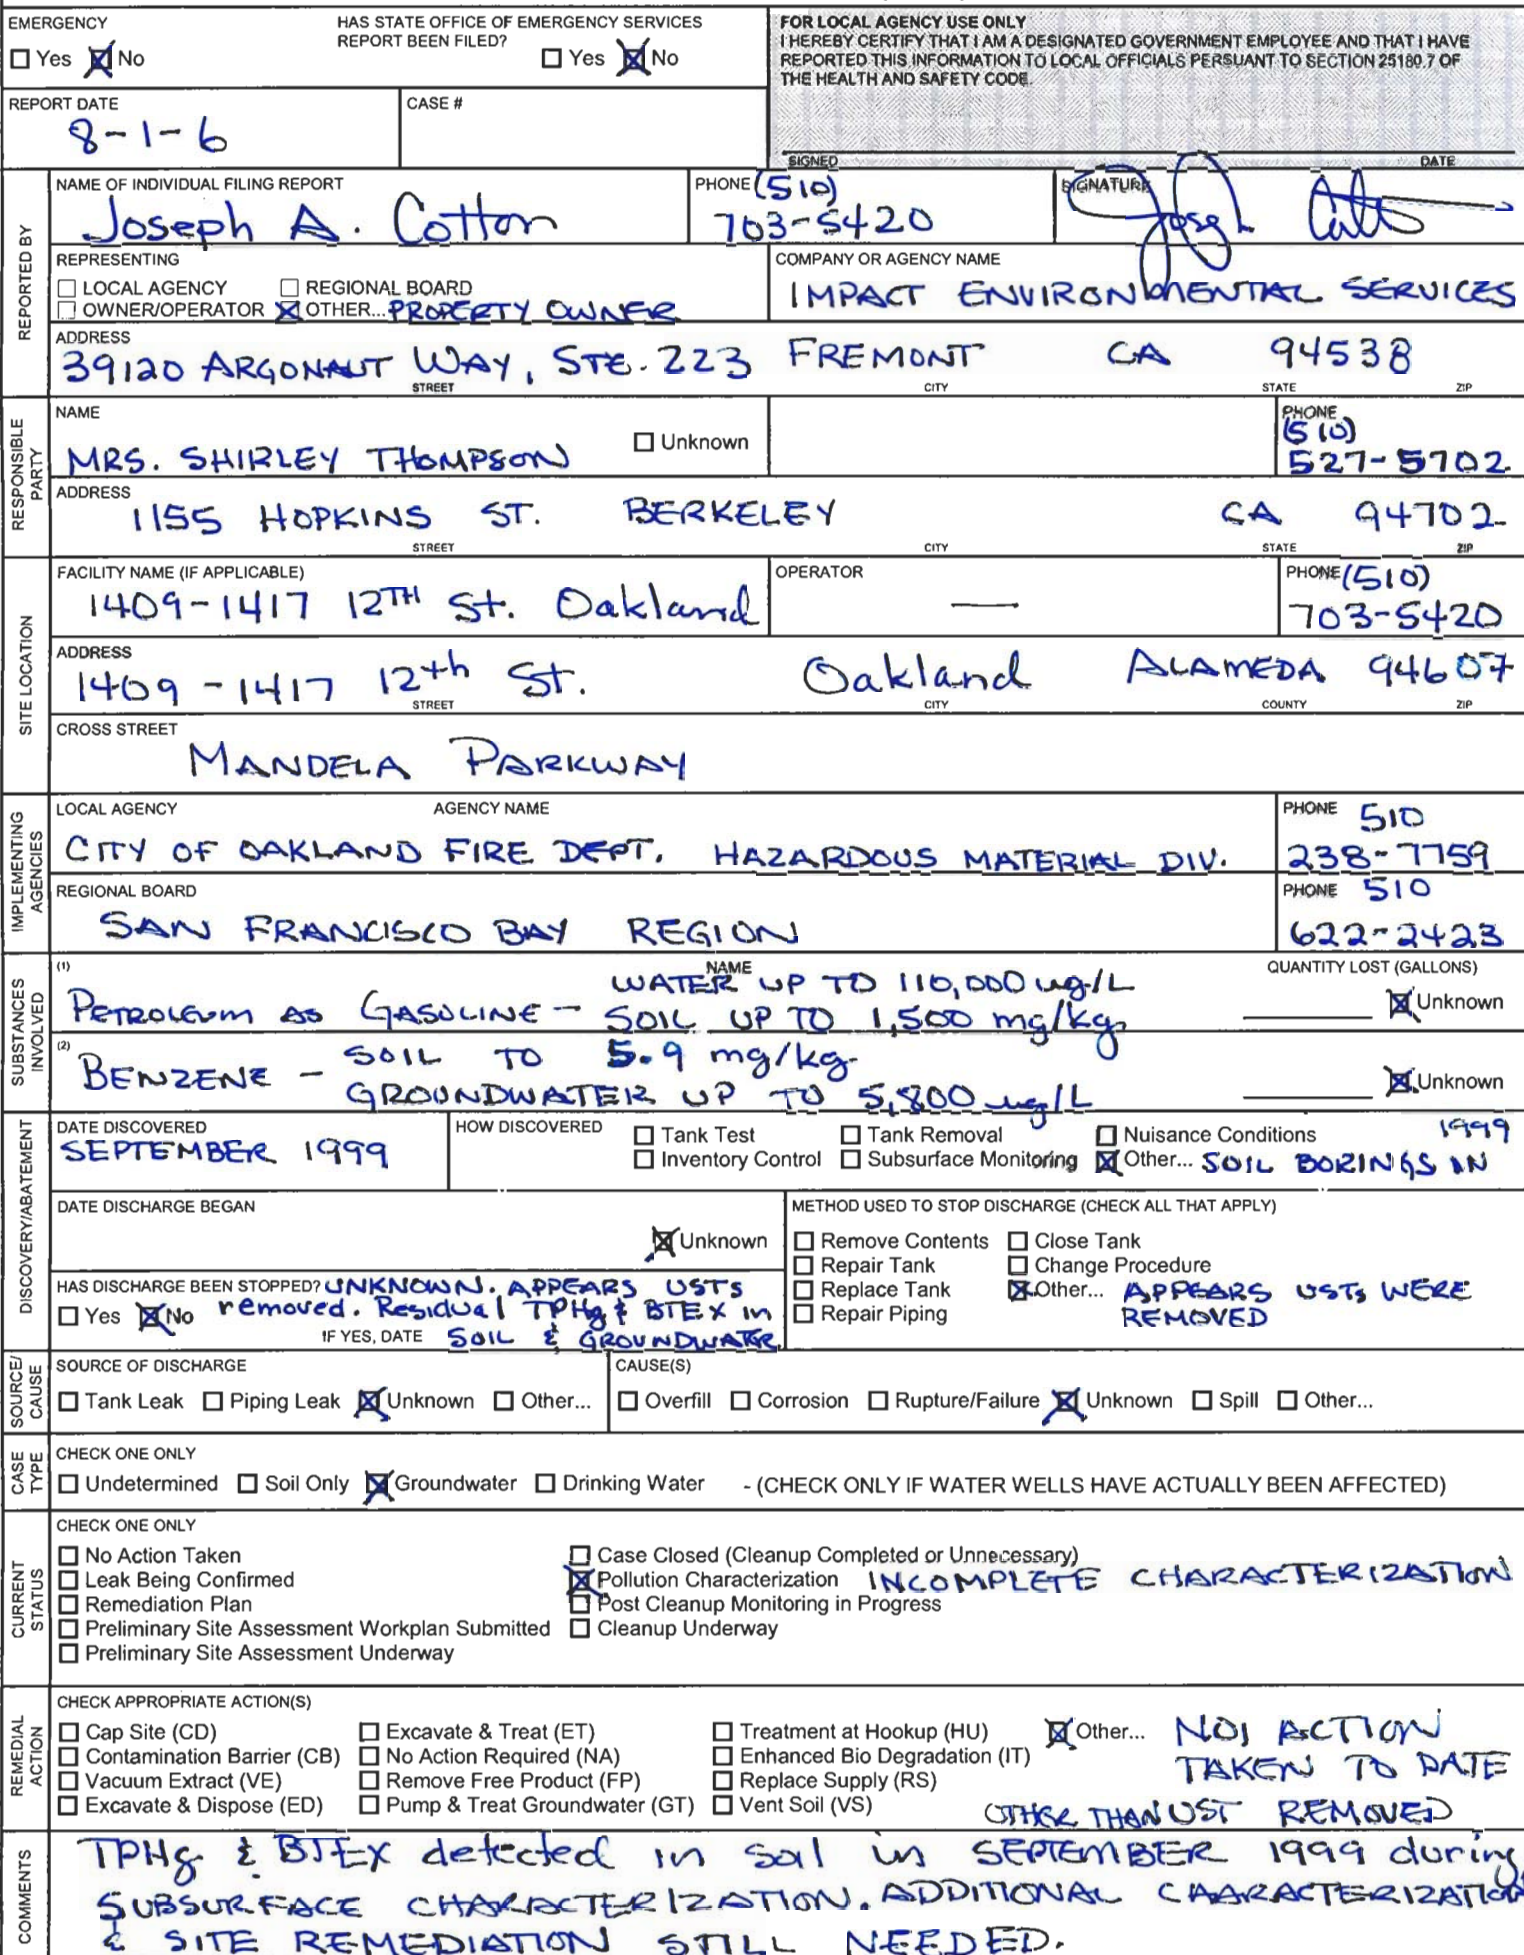 EMERGENCY
☐ Yes ☒ No
HAS STATE OFFICE OF EMERGENCY SERVICES
REPORT BEEN FILED? ☐ Yes ☒ No
FOR LOCAL AGENCY USE ONLY
I HEREBY CERTIFY THAT I AM A DESIGNATED GOVERNMENT EMPLOYEE AND THAT I HAVE
REPORTED THIS INFORMATION TO LOCAL OFFICIALS PERSUANT TO SECTION 25180.7 OF
THE HEALTH AND SAFETY CODE.
SIGNED DATE
REPORT DATE
8-1-6
CASE #
REPORTED BY
NAME OF INDIVIDUAL FILING REPORT
Joseph A. Cotton
PHONE (510)
703-5420
SIGNATURE
REPRESENTING
☐ LOCAL AGENCY ☐ REGIONAL BOARD
☐ OWNER/OPERATOR ☒ OTHER... PROPERTY OWNER
COMPANY OR AGENCY NAME
IMPACT ENVIRONMENTAL SERVICES
ADDRESS
39120 ARGONAUT WAY, STE. 223 FREMONT CA 94538
STREET CITY STATE ZIP
RESPONSIBLE PARTY
NAME
MRS. SHIRLEY THOMPSON ☐ Unknown
PHONE
(510)
527-5702
ADDRESS
1155 HOPKINS ST. BERKELEY CA 94702
STREET CITY STATE ZIP
SITE LOCATION
FACILITY NAME (IF APPLICABLE)
1409-1417 12TH St. Oakland
OPERATOR
—
PHONE (510)
703-5420
ADDRESS
1409-1417 12th St. Oakland ALAMEDA 94607
STREET CITY COUNTY ZIP
CROSS STREET
MANDELA PARKWAY
IMPLEMENTING AGENCIES
LOCAL AGENCY AGENCY NAME
CITY OF OAKLAND FIRE DEPT. HAZARDOUS MATERIAL DIV.
PHONE 510
238-7759
REGIONAL BOARD
SAN FRANCISCO BAY REGION
PHONE 510
622-2423
SUBSTANCES INVOLVED
(1) NAME QUANTITY LOST (GALLONS)
WATER UP TO 110,000 ug/L
PETROLEUM AS GASOLINE - SOIL UP TO 1,500 mg/kg
☒ Unknown
(2) BENZENE - SOIL TO 5.9 mg/kg
GROUNDWATER UP TO 5,800 ug/L
☒ Unknown
DISCOVERY/ABATEMENT
DATE DISCOVERED
SEPTEMBER 1999
HOW DISCOVERED
☐ Tank Test ☐ Tank Removal ☐ Nuisance Conditions
☐ Inventory Control ☐ Subsurface Monitoring ☒ Other... SOIL BORINGS IN 1999
DATE DISCHARGE BEGAN
☒ Unknown
METHOD USED TO STOP DISCHARGE (CHECK ALL THAT APPLY)
☐ Remove Contents ☐ Close Tank
☐ Repair Tank ☐ Change Procedure
☐ Replace Tank ☒ Other... APPEARS USTs WERE
☐ Repair Piping REMOVED
HAS DISCHARGE BEEN STOPPED? UNKNOWN. APPEARS USTS
☐ Yes ☒ No removed. Residual TPHg & BTEX in
IF YES, DATE SOIL & GROUNDWATER
SOURCE/ CAUSE
SOURCE OF DISCHARGE
☐ Tank Leak ☐ Piping Leak ☒ Unknown ☐ Other...
CAUSE(S)
☐ Overfill ☐ Corrosion ☐ Rupture/Failure ☒ Unknown ☐ Spill ☐ Other...
CASE TYPE
CHECK ONE ONLY
☐ Undetermined ☐ Soil Only ☒ Groundwater ☐ Drinking Water - (CHECK ONLY IF WATER WELLS HAVE ACTUALLY BEEN AFFECTED)
CURRENT STATUS
CHECK ONE ONLY
☐ No Action Taken ☐ Case Closed (Cleanup Completed or Unnecessary)
☐ Leak Being Confirmed ☒ Pollution Characterization INCOMPLETE CHARACTERIZATION
☐ Remediation Plan ☐ Post Cleanup Monitoring in Progress
☐ Preliminary Site Assessment Workplan Submitted ☐ Cleanup Underway
☐ Preliminary Site Assessment Underway
REMEDIAL ACTION
CHECK APPROPRIATE ACTION(S)
☐ Cap Site (CD) ☐ Excavate & Treat (ET) ☐ Treatment at Hookup (HU) ☒ Other... NO ACTION
☐ Contamination Barrier (CB) ☐ No Action Required (NA) ☐ Enhanced Bio Degradation (IT) TAKEN TO DATE
☐ Vacuum Extract (VE) ☐ Remove Free Product (FP) ☐ Replace Supply (RS)
☐ Excavate & Dispose (ED) ☐ Pump & Treat Groundwater (GT) ☐ Vent Soil (VS) OTHER THAN UST REMOVED
COMMENTS
TPHg & BTEX detected in soil in SEPTEMBER 1999 during
SUBSURFACE CHARACTERIZATION. ADDITIONAL CAARACTERIZATION
& SITE REMEDIATION STILL NEEDED.